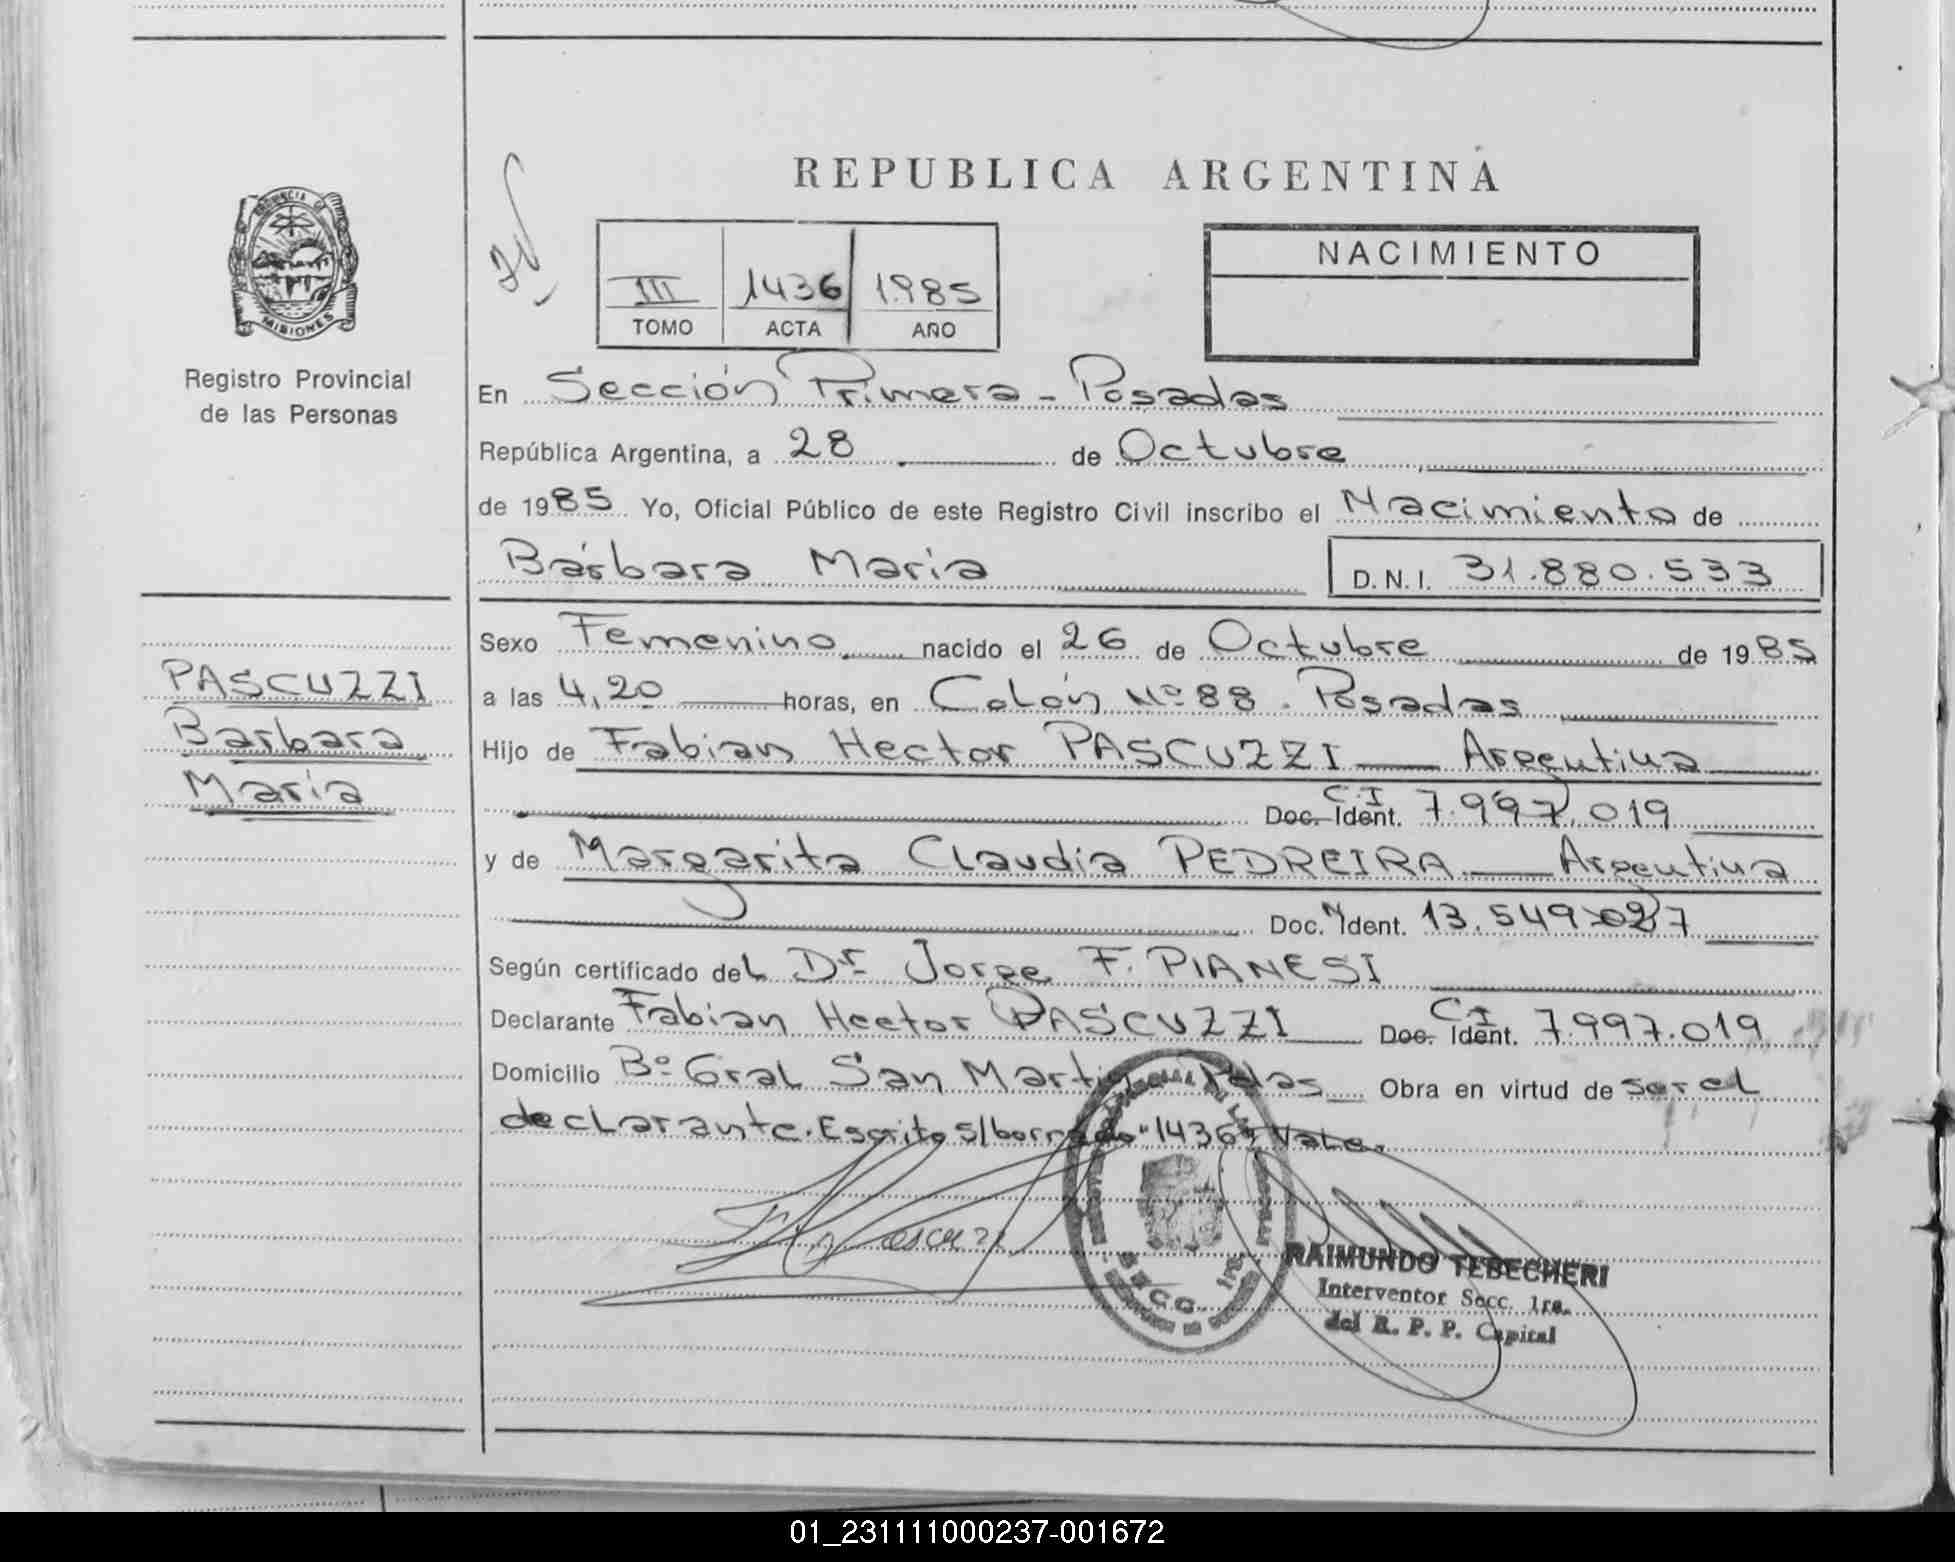 REPUBLICA ARGENTINA
PROVINCIA DE
MISIONES
Registro Provincial
de las Personas
III 1436 1985
TOMO ACTA AÑO
NACIMIENTO
En Sección Primera - Posadas
República Argentina, a 28 de Octubre
de 1985 Yo, Oficial Público de este Registro Civil inscribo el Nacimiento de
Bárbara María D.N.I. 31.880.533
PASCUZZI
Barbara
María
Sexo Femenino nacido el 26 de Octubre de 1985
a las 4,20 horas, en Colón Nº 88. Posadas
Hijo de Fabian Hector PASCUZZI Argentina
C.I
Doc. Ident. 7.997.019
y de Margarita Claudia PEDREIRA Argentina
Doc. Ident. 13.549.027
Según certificado del Dr Jorge F. PIANESI
Declarante Fabian Hector PASCUZZI C.I Doc. Ident. 7.997.019
Domicilio Bº Gral San Martin Pdas Obra en virtud de ser el
declarante. Escrito s/borrado "1436" Vale.
SECC. 1ra
RAIMUNDO TEBECHERI
Interventor Secc. 1ra.
del R. P. P. Capital
01_231111000237-001672